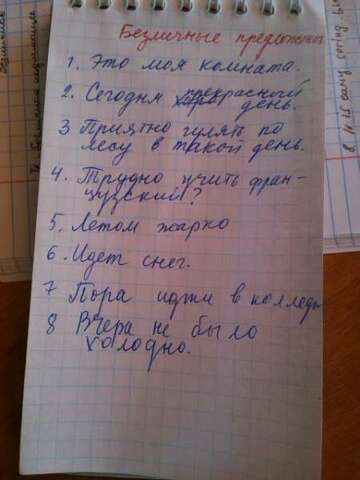 Безличные предложен
1. Это моя комната.
2. Сегодня прекрасный
день.
3 Приятно гулять по
лесу в такой день.
4. Трудно учить фран-
цузский?
5. Летом жарко
6. Идет снег.
7 Пора идти в колледж
8 Вчера не было
холодно.